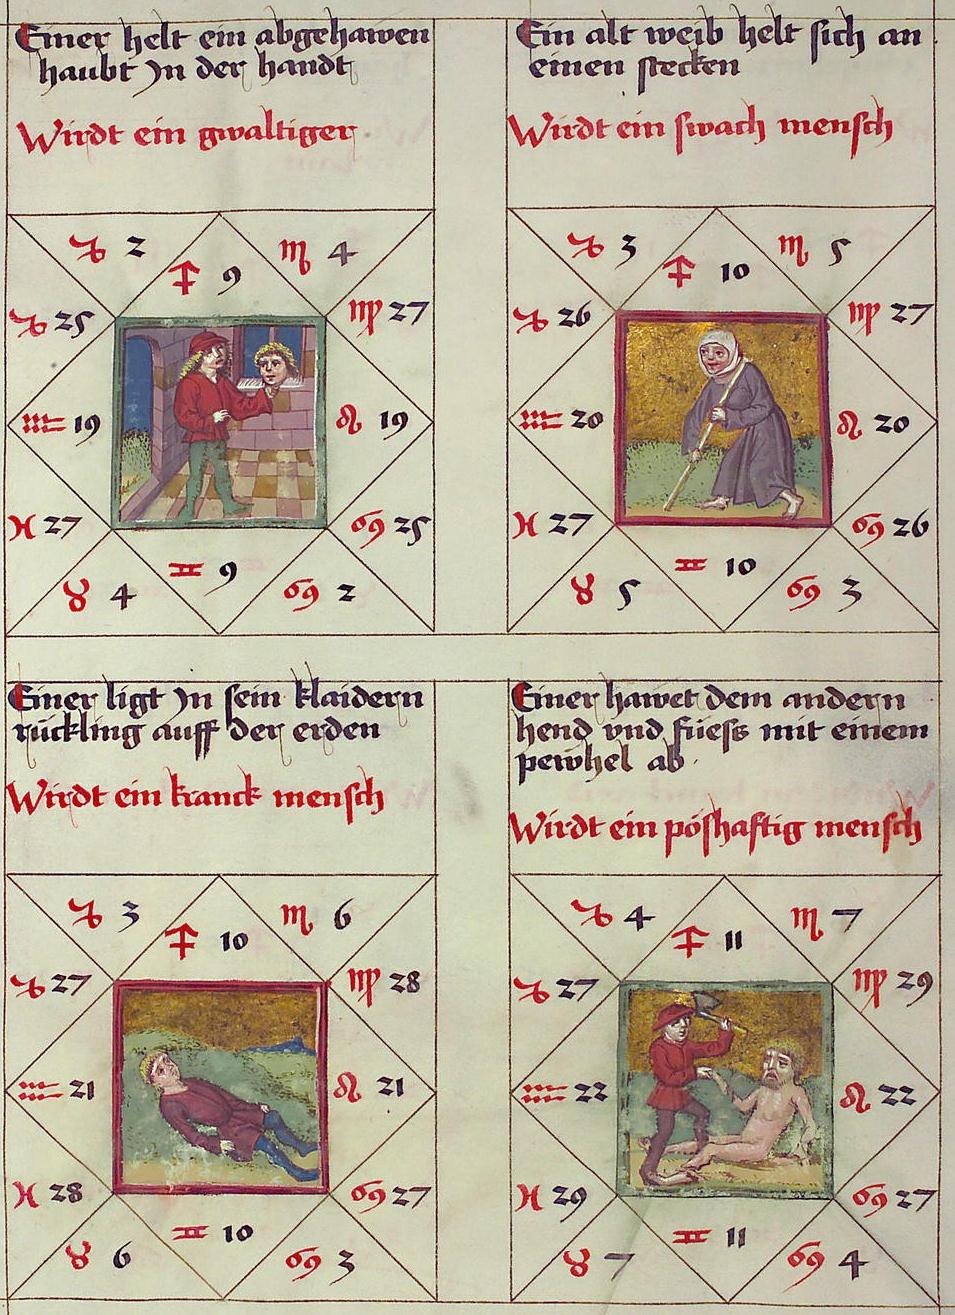 Einer helt ein abgehawen
haubt Jn der handt
Wirdt ein gwaltiger
♑ 2
♐ 9
♏ 4
♑ 25
♍ 27
♒ 19
♌ 19
♓ 27
♋ 25
♉ 4
♊ 9
♋ 2
Ein alt weib helt sich an
einen stecken
Wirdt ein swach mensch
♑ 3
♐ 10
♏ 5
♑ 26
♍ 27
♒ 20
♌ 20
♓ 27
♋ 26
♉ 5
♊ 10
♋ 3
Einer ligt Jn sein klaidern
rückling auff der erden
Wirdt ein kranck mensch
♑ 3
♐ 10
♏ 6
♑ 27
♍ 28
♒ 21
♌ 21
♓ 28
♋ 27
♉ 6
♊ 10
♋ 3
Einer hawet dem andern
hend vnd füess mit einem
pewhel ab
Wirdt ein póshaftig mensch
♑ 4
♐ 11
♏ 7
♑ 27
♍ 29
♒ 22
♌ 22
♓ 29
♋ 27
♉ 7
♊ 11
♋ 4